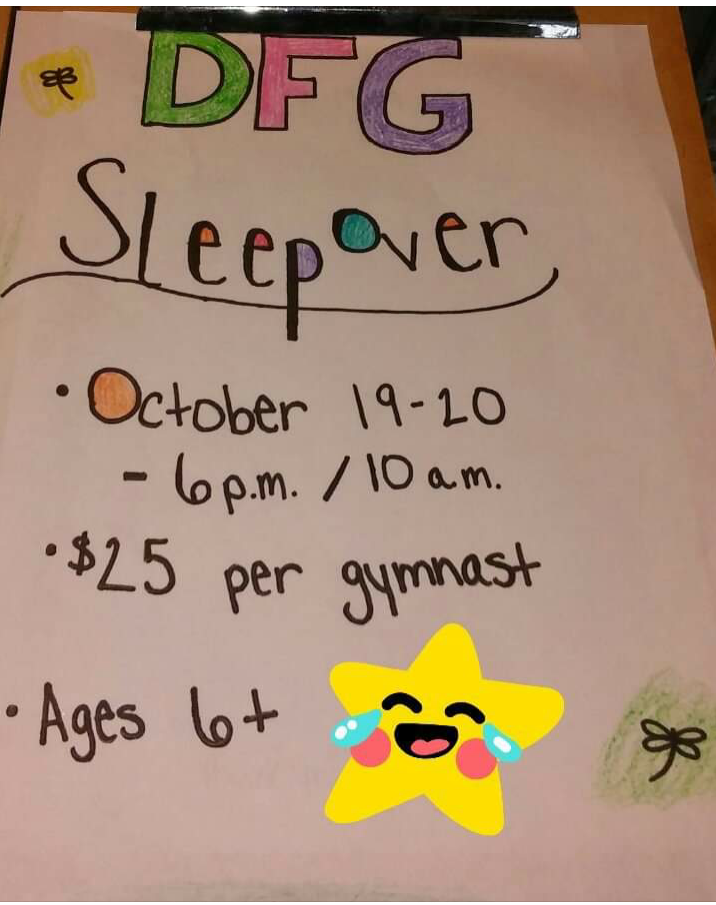 DFG
Sleepover
• October 19-20
- 6 p.m. / 10 a.m.
• $25 per gymnast
• Ages 6+